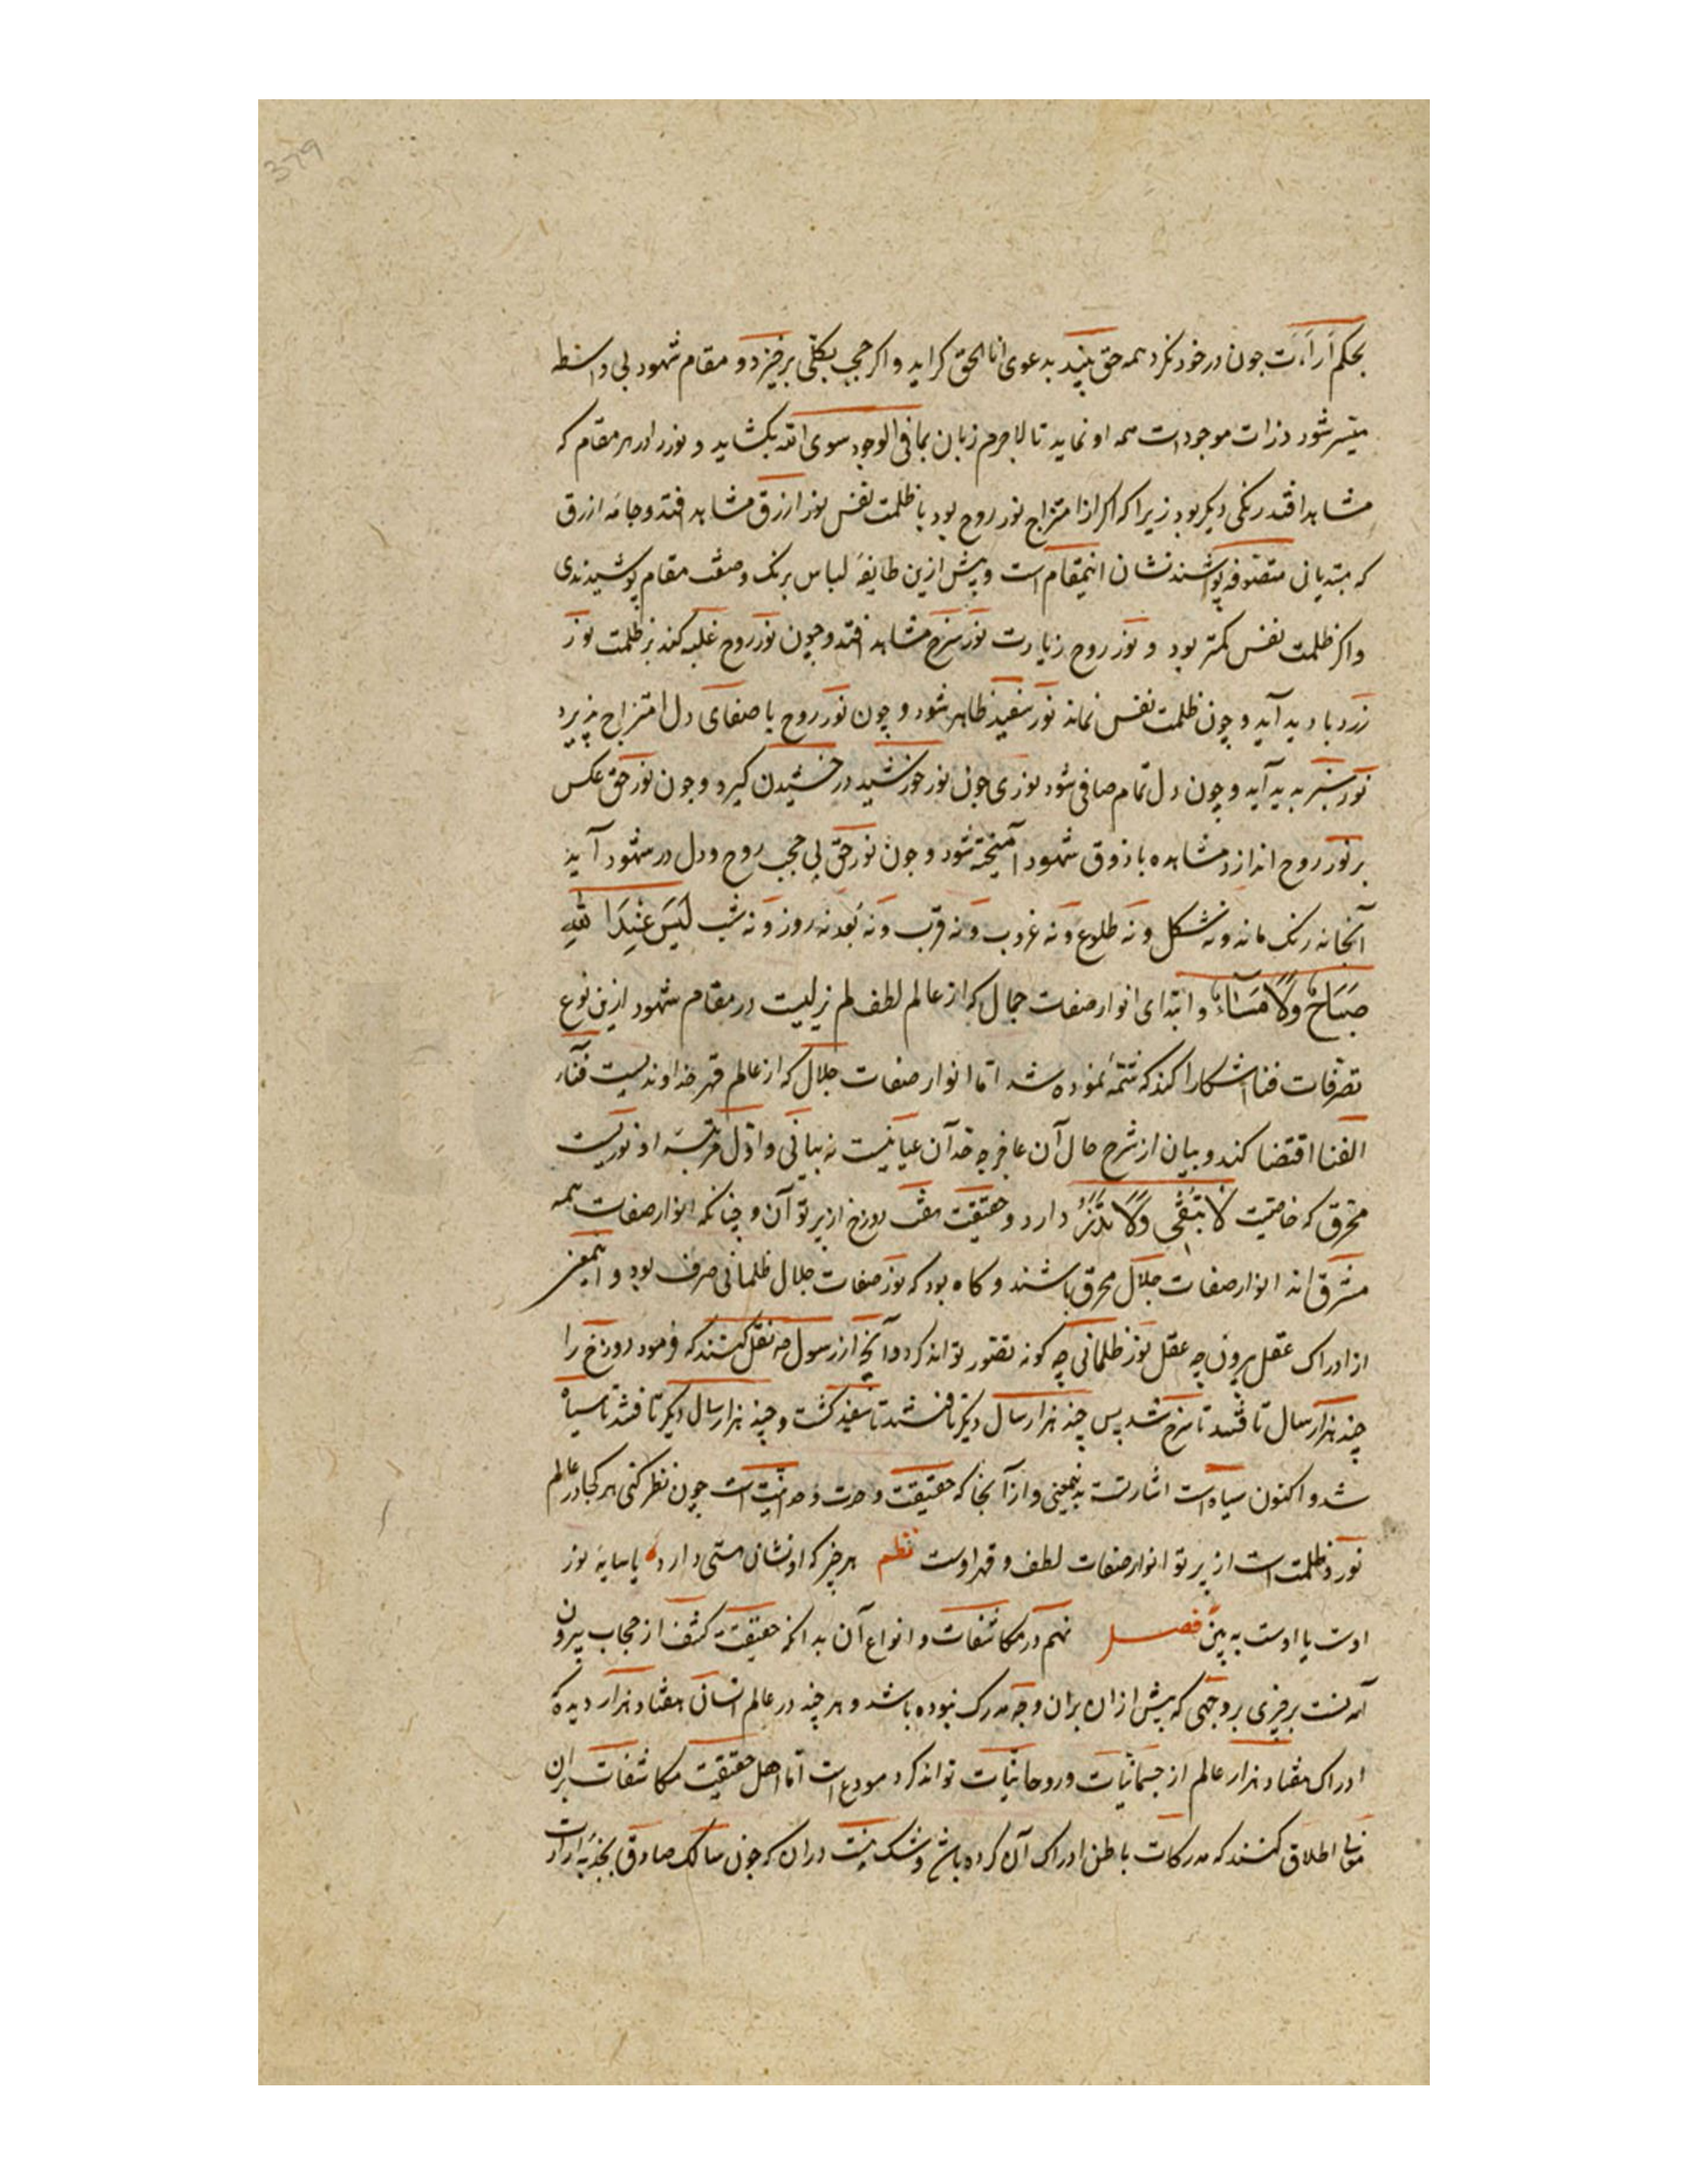 379
بحکم اراءت جون در خود نکرد همه حق بیند بدعوی انا الحق کراید و اکر حجب بکلی برخیزد و مقام شهود بی واسطه
میسر شود ذرات موجودات همه او نماید تا لاجرم زبان بما فی الوجود سوی الله بکشاید و نور را در هر مقام که
مشاهد افتد رنکی دیکر بود زیرا که اکر از امتزاج نور روح بود با ظلمت نفس نور ازرق مشاهد افتد و جامه ازرق
که مبتدیانی متصوفه پوشند نشان اینمقام است و پیش ازین طایفه لباس برنک وصف مقام پوشیدندی
و اکر ظلمت نفس کمتر بود و نور روح زیادت نور سرخ مشاهد افتد و چون نور روح غلبه کند بر ظلمت نور
زرد بادید آید و چون ظلمت نفس نماند نور سفید ظاهر شود و چون نور روح با صفای دل امتزاج پذیرد
نور سبز پدید آید و چون دل تمام صافی شود نوری جون نور خورشید درخشیدن کیرد و جون نور حق عکس
بر نور روح اندازد مشاهده با ذوق شهود آمیخته شود و جون نور حق بی حجب روح و دل در شهود آید
آنجا نه رنک ماند و نه شکل و نه طلوع و نه غروب و نه قرب و نه بُعد نه روز و نه شب لَیسَ عِندَ اللهِ
صَبَاحٌ وَلَا مَسَاءٌ و ابتدای انوار صفات جمال که از عالم لطف لم یزلیست در مقام شهود ازین نوع
تصرفات فنا اشکارا کند که شمّهٔ نموده شد اما انوار صفات جلال که از عالم قهر خداوندیست فناء
الفنا اقتضا کند و بیان از شرح حال آن عاجز چه آن عیانیست نه بیانی و اول مرتبه او نوریست
محرق که خاصیت لَا تُبْقِی وَلَا تَذَرُ دارد و حقیقت هفت دوزخ از پرتو آن و چنانکه انوار صفات همه
مشرق اند انوار صفات جلال محرق باشند و کاه بود که نور صفات جلال ظلمانی صرف بود و اینمعنی
از ادراک عقل بیرون چه عقل نور ظلمانی چه کونه تصور تواند کرد و آنچ از رسول صه نقل کنند که فرمود دوزخ را
چند هزار سال تافتند تا سرخ شد پس چند هزار سال دیکر تافتند تا سفید کشت و چند هزار سال دیکر تافتند تا سیاه
شد و اکنون سیاه است اشارتست بدینمعنی و از آنجا که حقیقت وحدت وحدانیت است چون نظر کنی هر کجا در عالم
نور و ظلمت است از پرتو انوار صفات لطف و قهر اوست نظم هر چیز که او نشان هستی دارد یا سایه نور
اوست یا اوست به بین فصل نهم در مکاشفات و انواع آن بدانکه حقیقت کشف از حجاب بیرون
آمدنست بر چیزی بر وجهی که پیش از ان بران وجه مدرک نبوده باشد و هر چند در عالم انسانی هفتاد هزار دیده که
ادراک هفتاد هزار عالم از جسمانیات و روحانیات تواند کرد مودع است اما اهل حقیقت مکاشفات بران
اطلاق کنند که مدرکات باطن ادراک آن کرده باشد و شک نیست دران که جون سالک صادق بجذبه ارادت